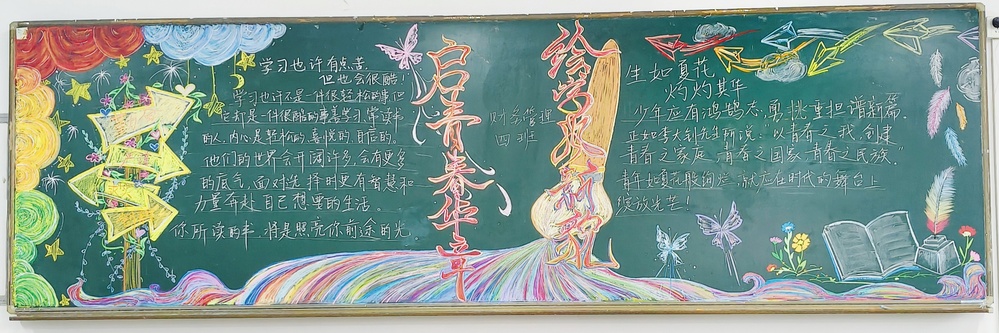 学习也许有点苦，
但也会很酷！
学习也许不是一件很轻松的事但
它却是一件很酷的事喜学习，常读书
的人，内心是轻松的，喜悦的，自信的。
他们的世界会开阔许多，会有更多
的底气，面对选择时更有智慧和
力量奔赴自己想要的生活。
你所读的书，将是照亮你前途的光
启青春华章
财务管理
四班
绘学史新程
生如夏花
灼灼其华
少年应有鸿鹄志，勇挑重担谱新篇。
正如李大钊先生所说：以青春之我，创建
青春之家庭，青春之国家，青春之民族。”
青年如夏花般绚烂，就应在时代的舞台上
绽放光芒！